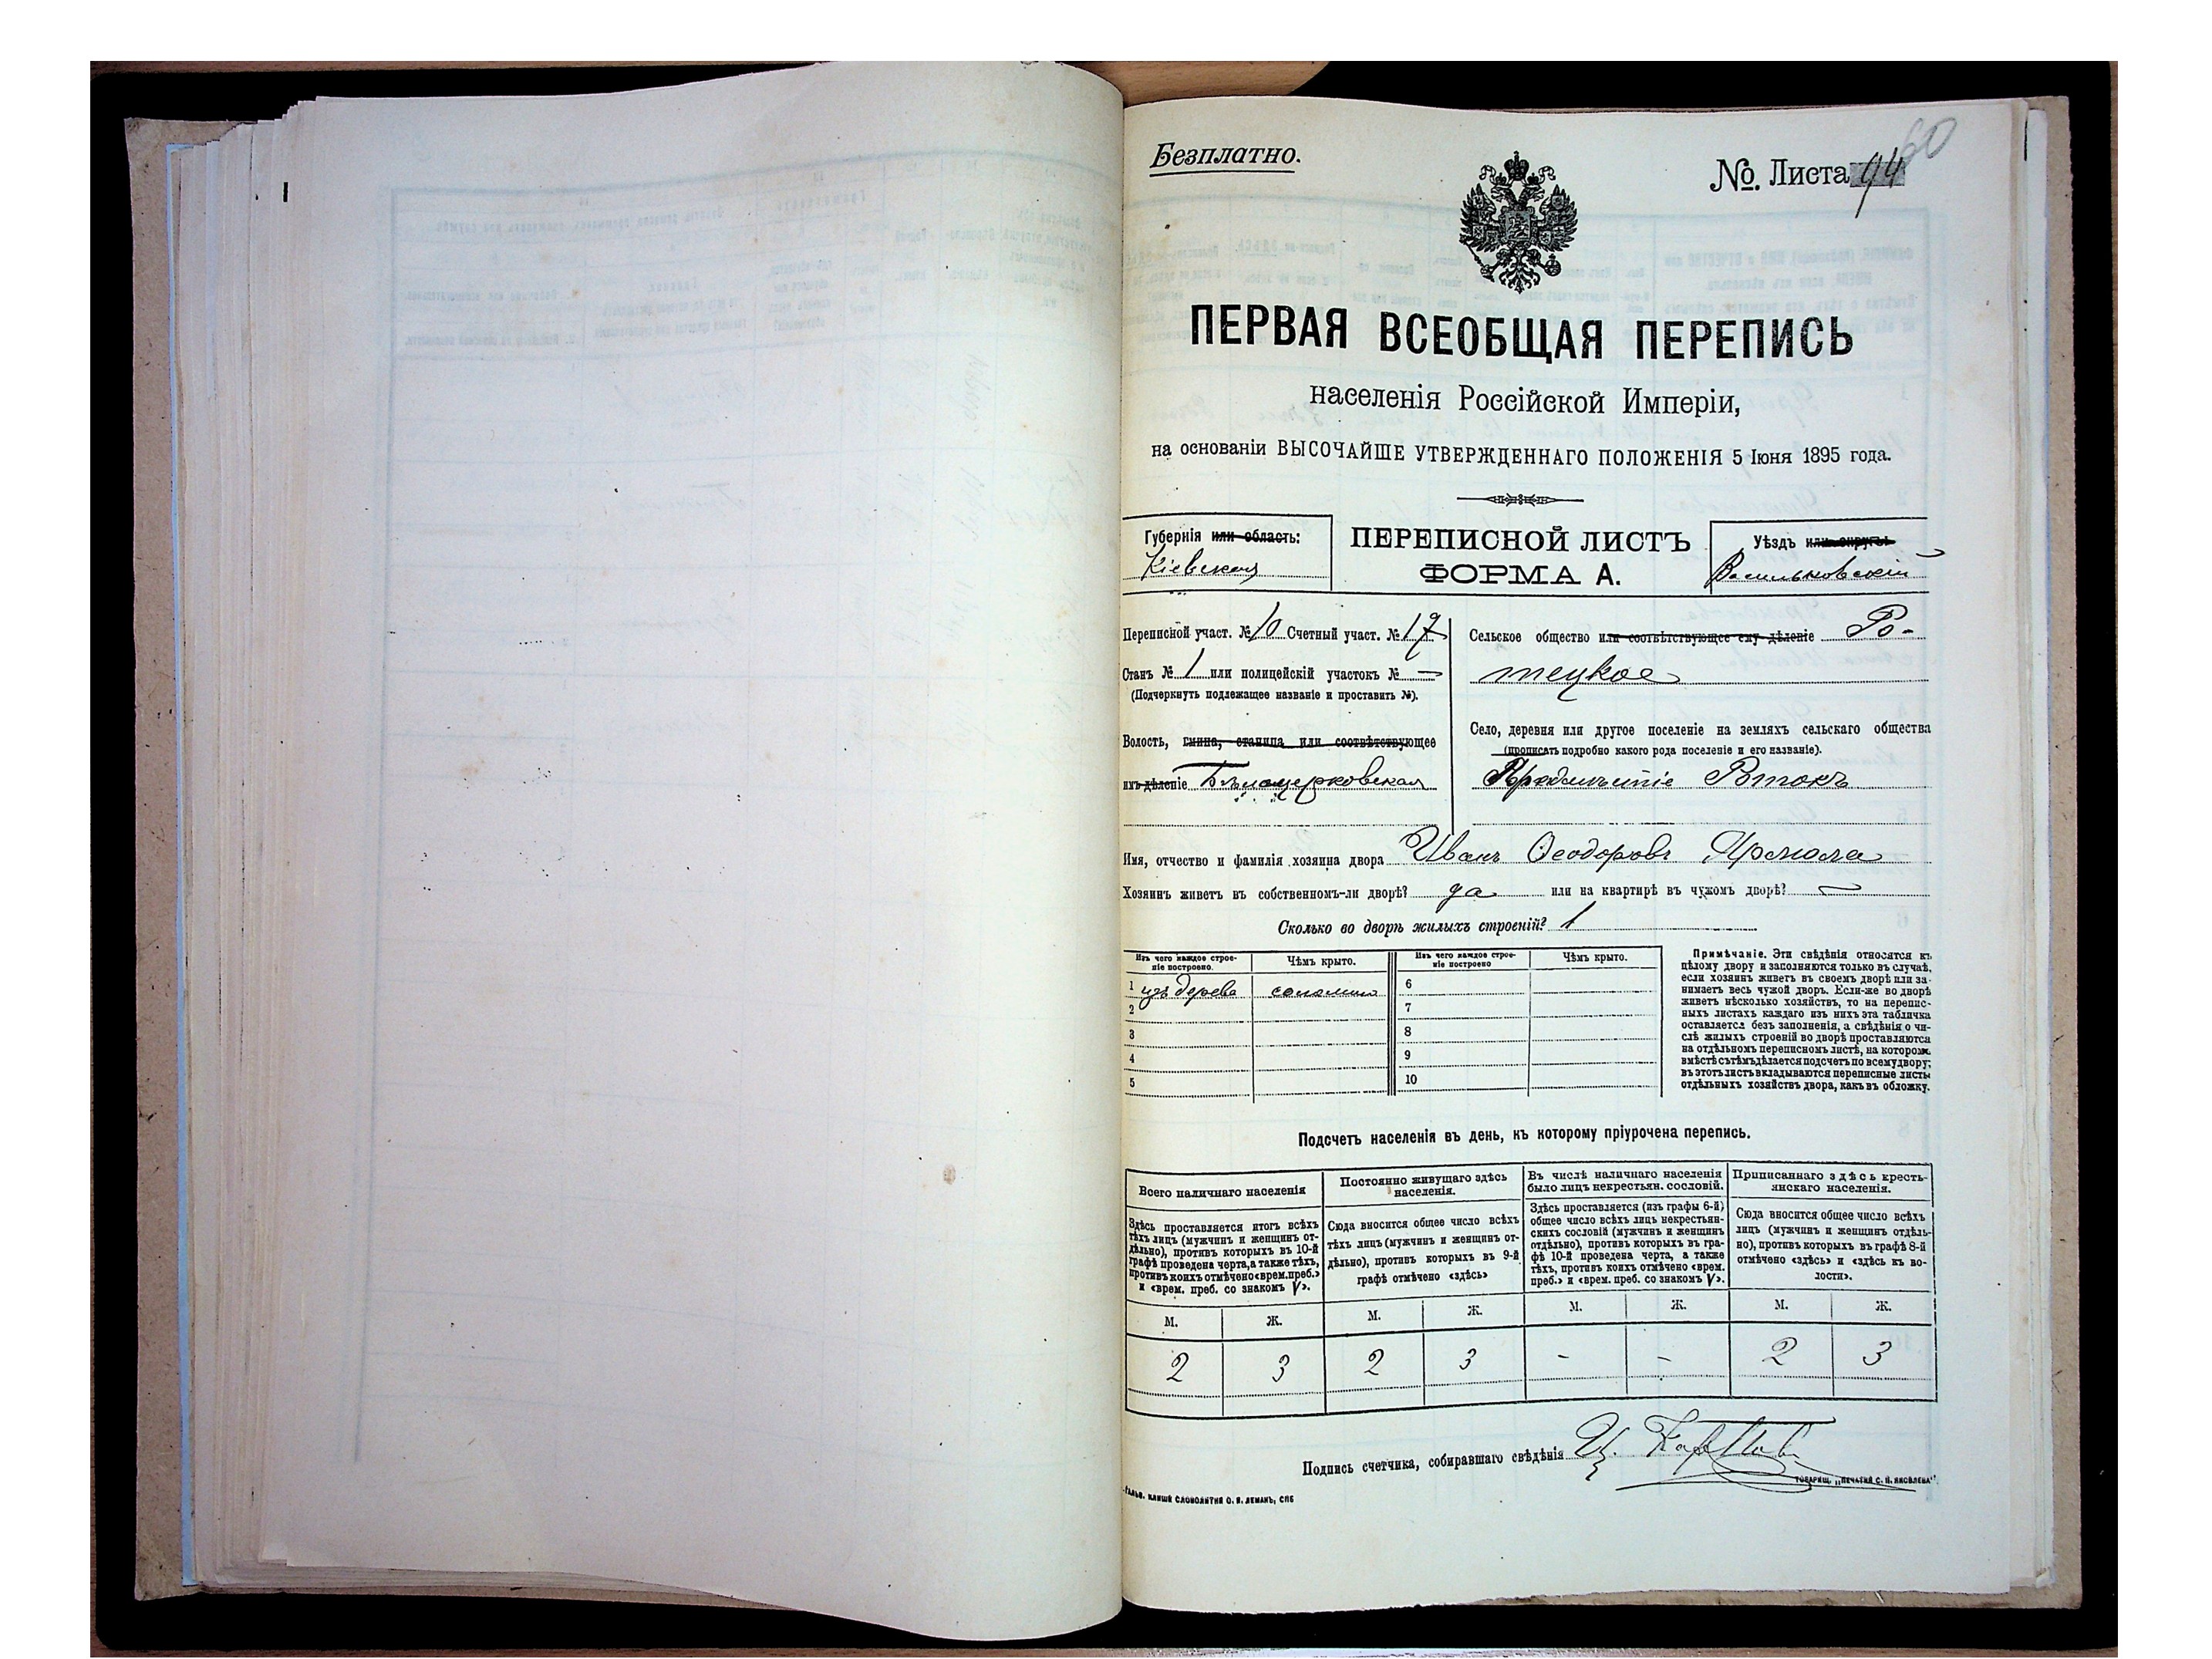 Безплатно.
60
№ Листа 94
ПЕРВАЯ ВСЕОБЩАЯ ПЕРЕПИСЬ
населенія Россійской Имперіи,
на основаніи ВЫСОЧАЙШЕ УТВЕРЖДЕННАГО ПОЛОЖЕНІЯ 5 Іюня 1895 года.
Губернія или область:
Кіевская
ПЕРЕПИСНОЙ ЛИСТЪ
ФОРМА А.
Уѣздъ или округъ
Васильковскій
Переписной участ. № 10 Счетный участ. № 17
Станъ № 1 или полицейскій участокъ № —
(Подчеркнуть подлежащее названіе и проставить №).
Волость, гмина, станица или соотвѣтствующее
имъ дѣленіе Бѣлоцерковская
Сельское общество или соотвѣтствующее ему дѣленіе Ро-
тецкое
Село, деревня или другое поселеніе на земляхъ сельскаго общества
(прописать подробно какого рода поселеніе и его названіе).
Предмѣстіе Ротокъ
Имя, отчество и фамилія хозяина двора Иванъ Ѳеодоровъ Ярмола
Хозяинъ живетъ въ собственномъ-ли дворѣ? да или на квартирѣ въ чужомъ дворѣ? —
Сколько во дворѣ жилыхъ строеній? 1
Изъ чего каждое строе-
ніе построено.
Чѣмъ крыто.
Изъ чего каждое строе-
ніе построено
Чѣмъ крыто.
1 изъ дерева соломою 6
2 7
3 8
4 9
5 10
Примѣчаніе. Эти свѣдѣнія относятся къ
цѣлому двору и заполняются только въ случаѣ,
если хозяинъ живетъ въ своемъ дворѣ или за-
нимаетъ весь чужой дворъ. Если-же во дворѣ
живетъ нѣсколько хозяйствъ, то на перепис-
ныхъ листахъ каждаго изъ нихъ эта табличка
оставляется безъ заполненія, а свѣдѣнія о чи-
слѣ жилыхъ строеній во дворѣ проставляются
на отдѣльномъ переписномъ листѣ, на которомъ
вмѣстѣ съ тѣмъ дѣлается подсчетъ по всему двору;
въ этотъ листъ вкладываются переписные листы
отдѣльныхъ хозяйствъ двора, какъ въ обложку.
Подсчетъ населенія въ день, къ которому пріурочена перепись.
Всего наличнаго населенія
Здѣсь проставляется итогъ всѣхъ
тѣхъ лицъ (мужчинъ и женщинъ от-
дѣльно), противъ которыхъ въ 10-й
графѣ проведена черта, а также тѣхъ,
противъ коихъ отмѣчено «врем. преб.»
и «врем. преб. со знакомъ V».
Постоянно живущаго здѣсь
населенія.
Сюда вносится общее число всѣхъ
тѣхъ лицъ (мужчинъ и женщинъ от-
дѣльно), противъ которыхъ въ 9-й
графѣ отмѣчено «здѣсь»
Въ числѣ наличнаго населенія
было лицъ некрестьян. сословій.
Здѣсь проставляется (изъ графы 6-й)
общее число всѣхъ лицъ некрестьян-
скихъ сословій (мужчинъ и женщинъ
отдѣльно), противъ которыхъ въ гра-
фѣ 10-й проведена черта, а также
тѣхъ, противъ коихъ отмѣчено «врем.
преб.» и «врем. преб. со знакомъ V».
Приписаннаго здѣсь кресть-
янскаго населенія.
Сюда вносится общее число всѣхъ
лицъ (мужчинъ и женщинъ отдѣль-
но), противъ которыхъ въ графѣ 8-й
отмѣчено «здѣсь» и «здѣсь къ во-
лости».
М. Ж. М. Ж. М. Ж. М. Ж.
2 3 2 3 - - 2 3
Подпись счетчика, собиравшаго свѣдѣнія
ТОВАРИЩ. „ПЕЧАТНЯ С. П. ЯКОВЛЕВА“.
КЛИШЕ СЛОВОЛИТНЯ О. И. ЛЕМАНЪ, СПБ